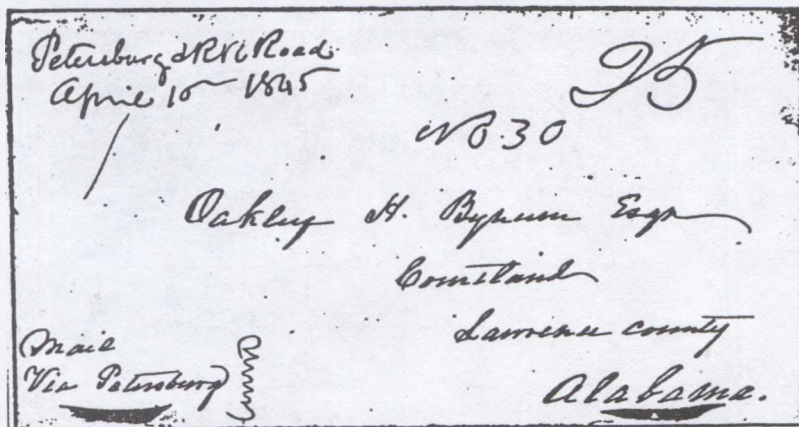 Petersburg & RV Road
April 10 1845
25
No. 30
Oakley H. Bynum Esqr
Courtland
Lawrence County
Alabama.
Mail
Via Petersburg